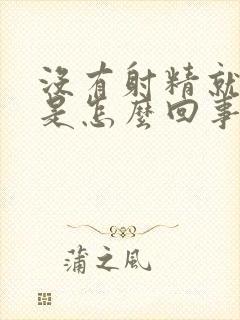 沒有射精就
是怎麼回事
蒲之風